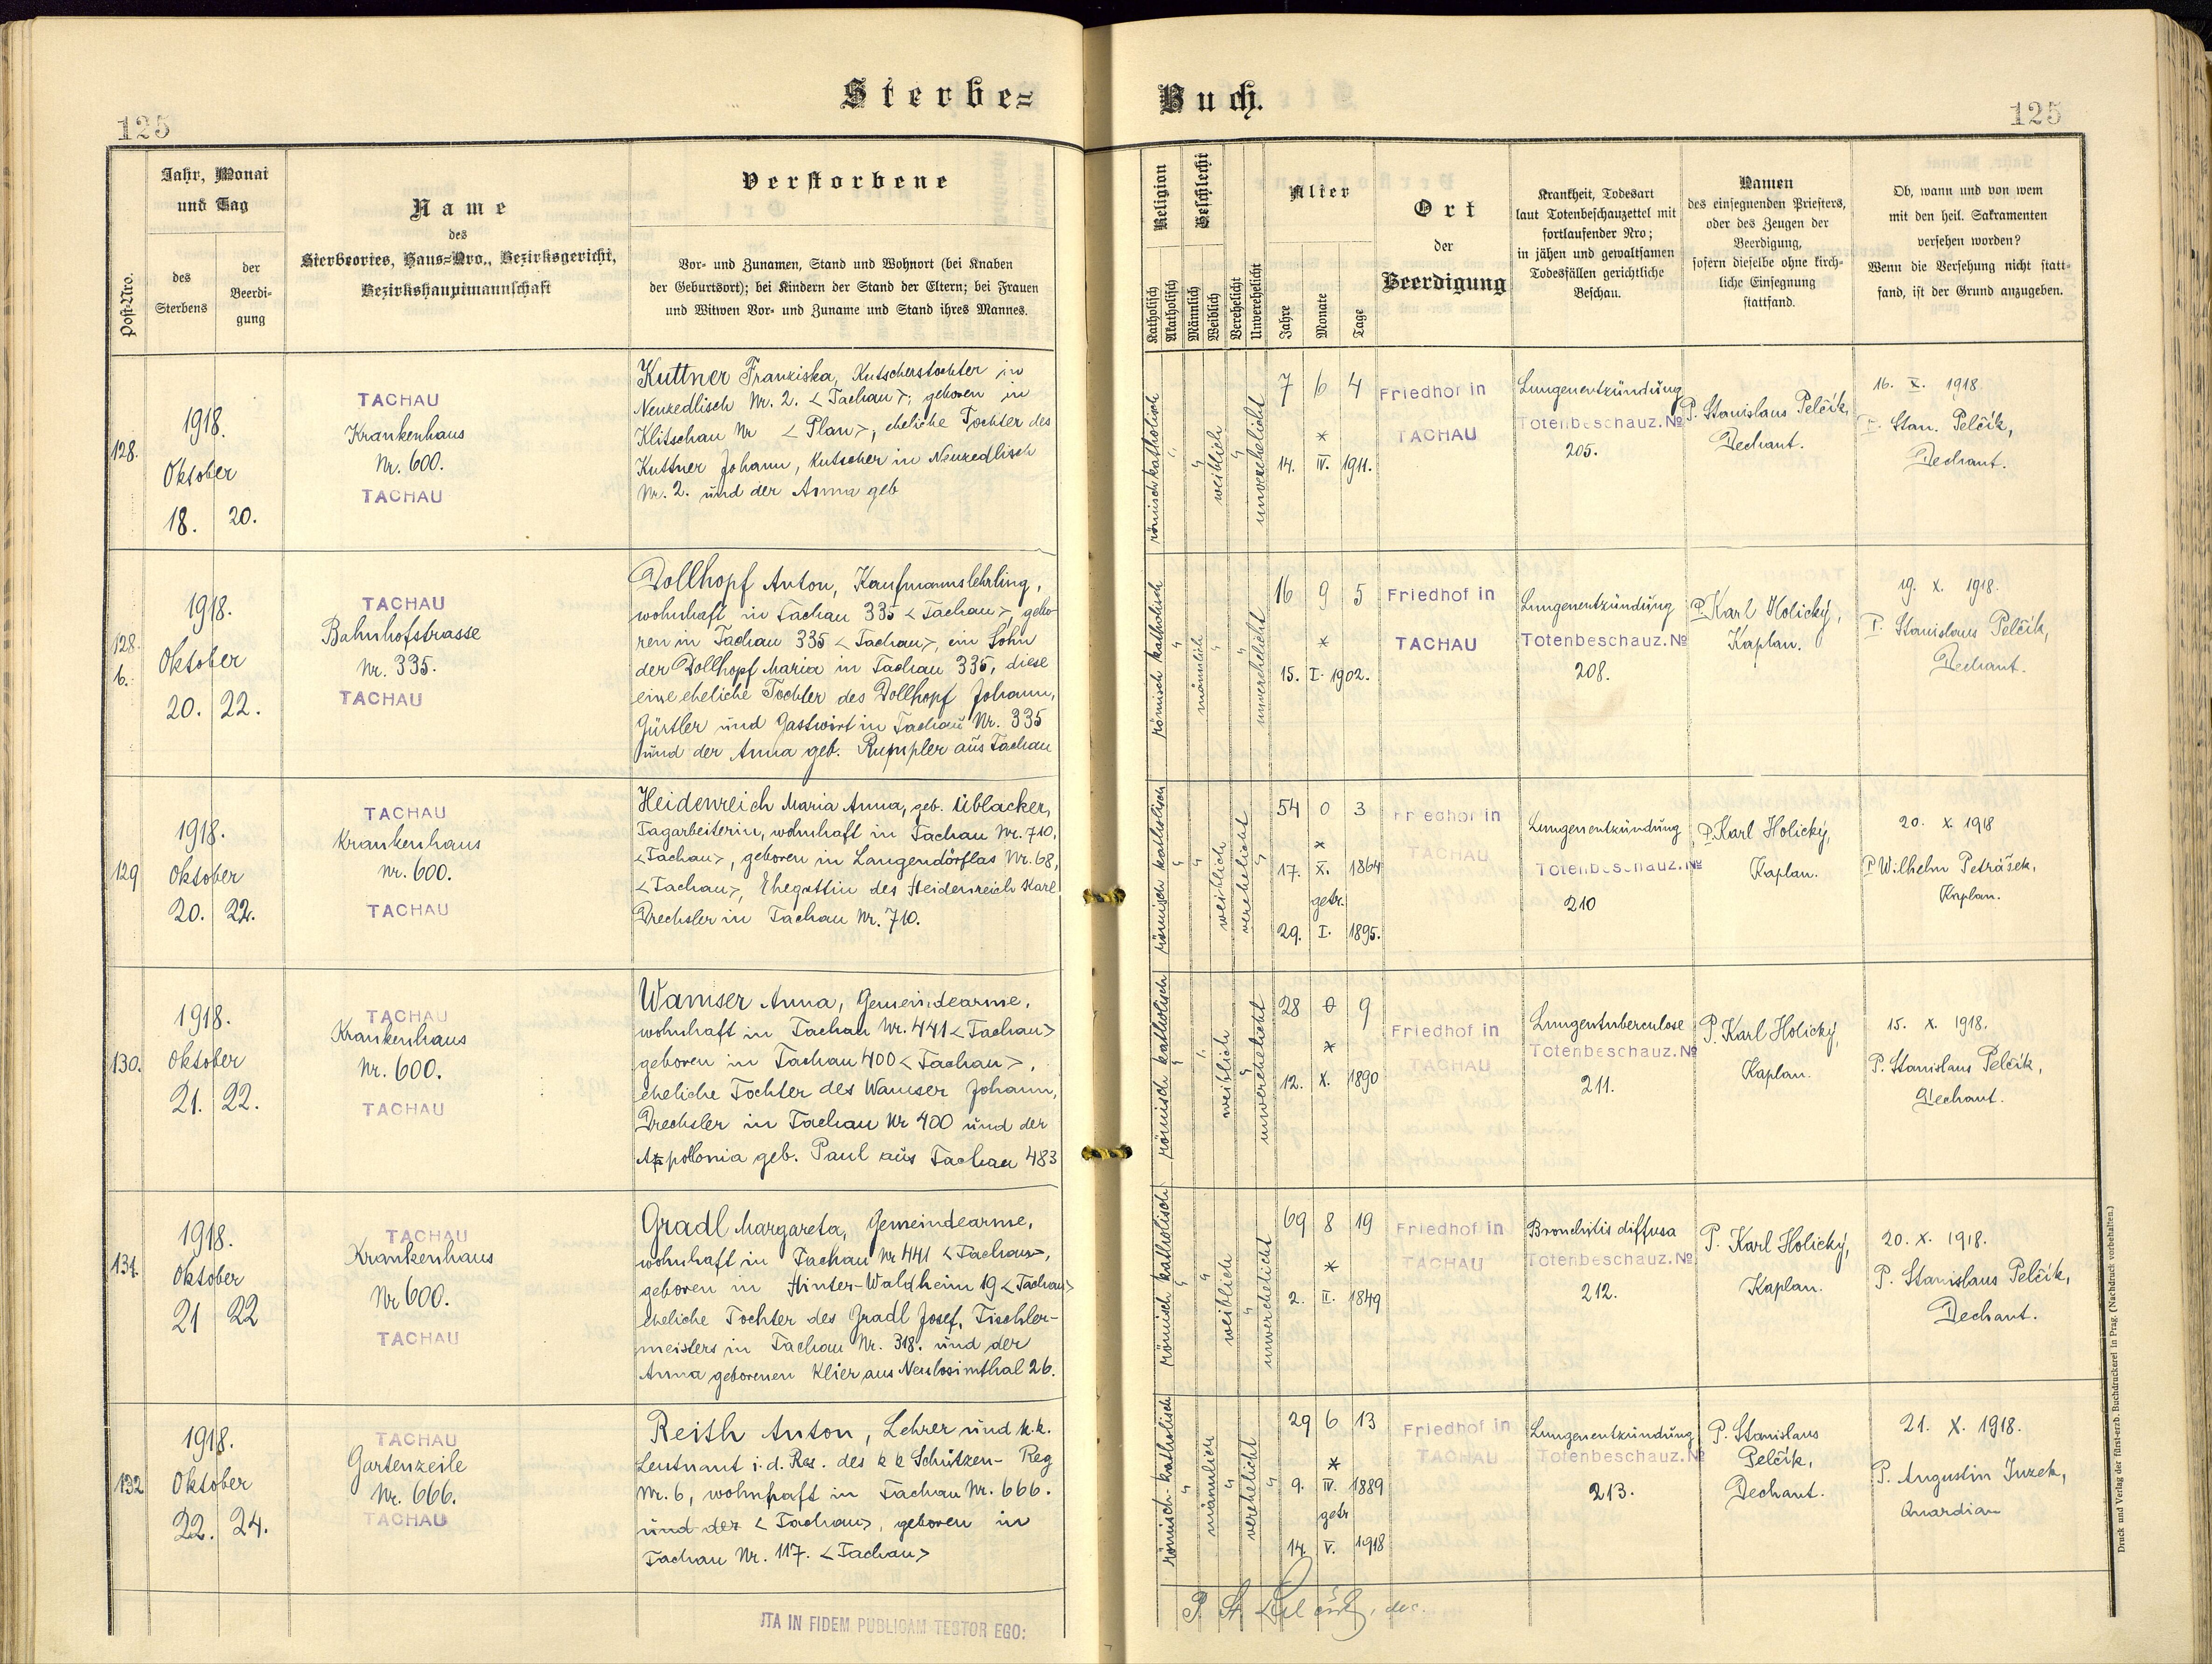 Sterbe=
Buch.
125
125
Post=Nro.
Jahr, Monat
und Tag
des
Sterbens
der
Beerdi=
gung
Name
des
Sterbeortes, Haus=Nro., Bezirksgericht,
Bezirkshauptmannschaft
Verstorbene
Vor= und Zunamen, Stand und Wohnort (bei Knaben
der Geburtsort); bei Kindern der Stand der Eltern; bei Frauen
und Witwen Vor= und Zuname und Stand ihres Mannes.
Religion
Katholisch
Akatholisch
Geschlecht
Männlich
Weiblich
Verehelicht
Unverehelicht
Alter
Jahre
Monate
Tage
Ort
der
Beerdigung
Krankheit, Todesart
laut Totenbeschauzettel mit
fortlaufender Nro;
in jähen und gewaltsamen
Todesfällen gerichtliche
Beschau.
Namen
des einsegnenden Priesters,
oder des Zeugen der
Beerdigung,
sofern dieselbe ohne kirch=
liche Einsegnung
stattfand.
Ob, wann und von wem
mit den heil. Sakramenten
versehen worden?
Wenn die Versehung nicht statt=
fand, ist der Grund anzugeben.
128.
1918.
Oktober
18. 20.
TACHAU
Krankenhaus
Nr. 600.
TACHAU
Kuttner Franziska, Kutscherstochter in
Neuzedlisch Nr. 2. <Tachau>; geboren in
Klitschau Nr <Plan>, eheliche Tochter des
Kuttner Johann, Kutscher in Neuzedlisch
Nr. 2. und der Anna geb
römisch katholisch
"
"
weiblich
"
unverehelicht
7 6 4
*
14. IV. 1911.
Friedhof in
TACHAU
Lungenentzündung
Totenbeschauz. №
205.
P. Stanislaus Pelčík,
Dechant.
16. X. 1918.
P. Stan. Pelčík,
Dechant.
128.
b.
1918.
Oktober
20. 22.
TACHAU
Bahnhofstrasse
Nr. 335.
TACHAU
Dollhopf Anton, Kaufmannslehrling,
wohnhaft in Tachau 335 <Tachau>, gebo-
ren in Tachau 335 <Tachau>, ein Sohn
der Dollhopf Maria in Tachau 335, diese
eine eheliche Tochter des Dollhopf Johann,
Gürtler und Gastwirt in Tachau Nr. 335
und der Anna geb. Rumpler aus Tachau
römisch katholisch
"
männlich
"
"
unverehelicht
16 9 5
*
15. I. 1902.
Friedhof in
TACHAU
Lungenentzündung
Totenbeschauz. №
208.
P. Karl Holický,
Kaplan.
19. X. 1918.
P. Stanislaus Pelčík,
Dechant.
129
1918.
Oktober
20. 22.
TACHAU
Krankenhaus
Nr. 600.
TACHAU
Heidenreich Maria Anna, geb. Üblacker,
Tagarbeiterin, wohnhaft in Tachau Nr. 710,
<Tachau>, geboren in Langendörflas Nr. 68,
<Tachau>, Ehegattin des Heidenreich Karl
Drechsler in Tachau Nr. 710.
römisch katholisch
"
"
weiblich
verehelicht
"
54 0 3
*
17. X. 1864
getr.
29. I. 1895.
Friedhof in
TACHAU
Lungenentzündung
Totenbeschauz. №
210
P. Karl Holický,
Kaplan.
20. X. 1918
P. Wilhelm Petrášek,
Kaplan.
130.
1918.
Oktober
21. 22.
TACHAU
Krankenhaus
Nr. 600.
TACHAU
Wamser Anna, Gemeindearme,
wohnhaft in Tachau Nr. 441 <Tachau>
geboren in Tachau 400 <Tachau>,
eheliche Tochter des Wamser Johann,
Drechsler in Tachau Nr 400 und der
Appolonia geb. Paul aus Tachau 483
römisch katholisch
"
"
weiblich
"
unverehelicht
28 0 9
*
12. X. 1890
Friedhof in
TACHAU
Lungentuberculose
Totenbeschauz. №
211.
P. Karl Holický,
Kaplan.
15. X. 1918.
P. Stanislaus Pelčík,
Dechant.
131.
1918.
Oktober
21 22
TACHAU
Krankenhaus
Nr 600.
TACHAU
Gradl Margareta, Gemeindearme,
wohnhaft in Tachau Nr 441 <Tachau>,
geboren in Hinter-Waldheim 19 <Tachau>
eheliche Tochter des Gradl Josef, Tischler-
meisters in Tachau Nr. 318. und der
Anna geborenen Klier aus Neulosimthal 26.
römisch katholisch
"
"
weiblich
"
unverehelicht
69 8 19
*
2. II. 1849
Friedhof in
TACHAU
Bronchitis diffusa
Totenbeschauz. №
212.
P. Karl Holický,
Kaplan.
20. X. 1918.
P. Stanislaus Pelčík,
Dechant.
132
1918.
Oktober
22. 24.
TACHAU
Gartenzeile
Nr. 666.
TACHAU
Reith Anton, Lehrer und k.k.
Leutnant i.d. Res. des k k Schützen- Reg
Nr. 6, wohnhaft in Tachau Nr. 666.
und der <Tachau>, geboren in
Tachau Nr. 117. <Tachau>
römisch-katholisch
"
männlich
"
verehelicht
"
29 6 13
*
9. IV. 1889
getr
14. V. 1918
Friedhof in
TACHAU
Lungenentzündung
Totenbeschauz. №
213.
P. Stanislaus
Pelčík,
Dechant.
21. X. 1918.
P. Augustin Juzek,
Quardian
ITA IN FIDEM PUBLICAM TESTOR EGO:
P. St. Pelčík, dec.
Druck und Verlag der fürst-erzb. Buchdruckerei in Prag. (Nachdruck vorbehalten.)